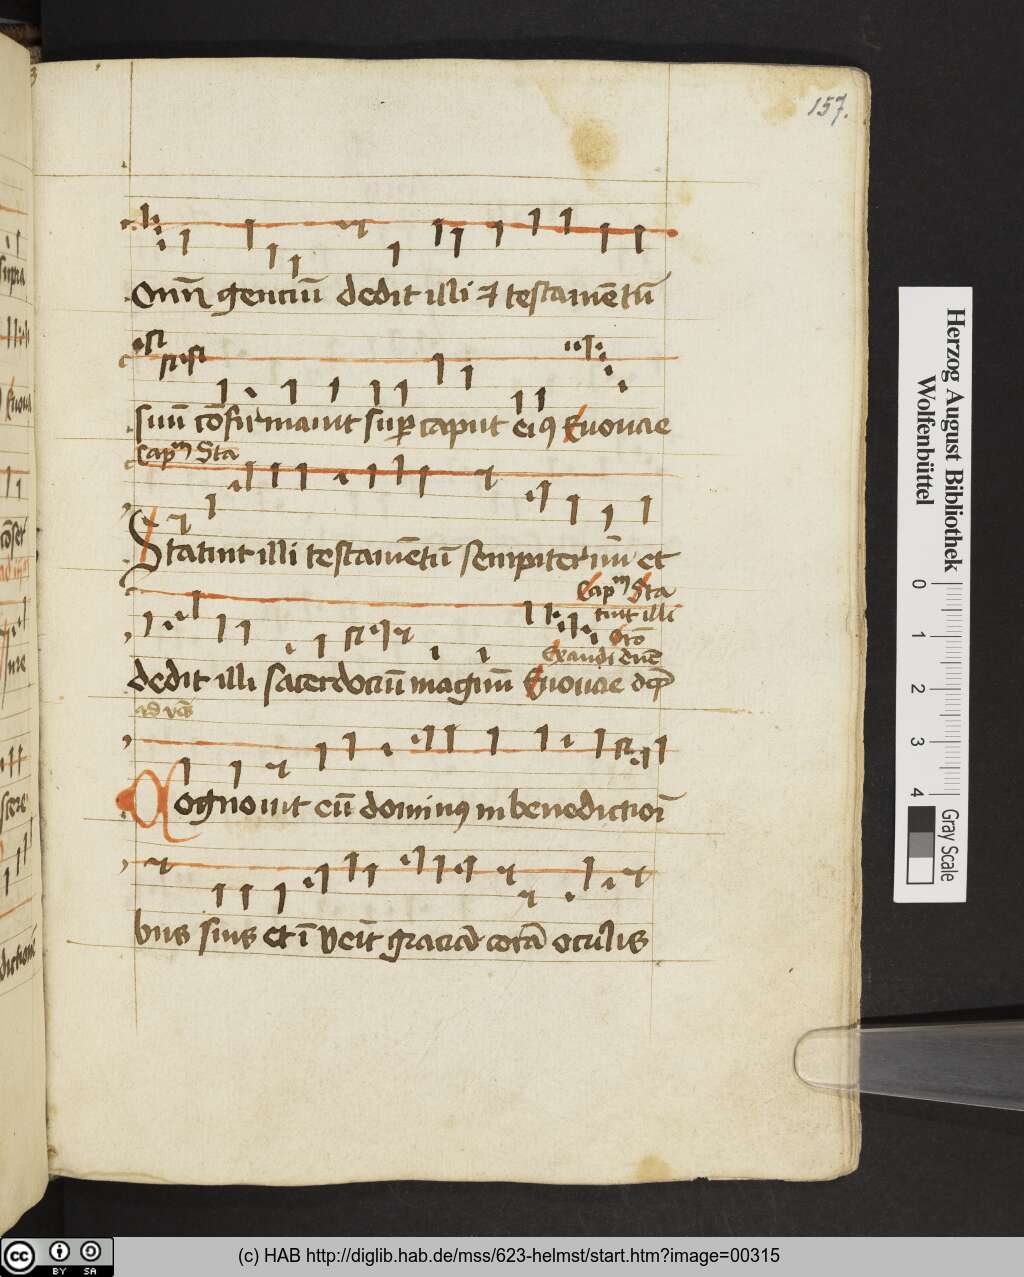 157.
Om̄ genciū dedit illi et testamētū
suū cōfirmauit sup caput eiꝯ Euouae
Capᵐ Sta
Statuit illi testamētū sempiternū et
Capᵐ Sta
tuit illi
Exaudi dn̄e
dedit illi sacerdociū magnū Euouae
ad vēs
Cognouit eū dominꝯ in benedictiōi
bus suis et ī veīt graciā corā oculis
Herzog August Bibliothek
Wolfenbüttel
0 1 2 3 4
Gray Scale
cc BY SA
(c) HAB http://diglib.hab.de/mss/623-helmst/start.htm?image=00315